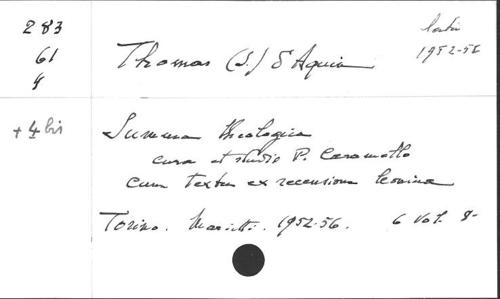 283
61
4
latin
1952-56
Thomas (S.) d'Aquin
+ 4 bis
Summa theologica
cura et studio P. Caramello
cum textu ex recensione leonina
Torino. Marietti. 1952-56. 6 vol. 8-